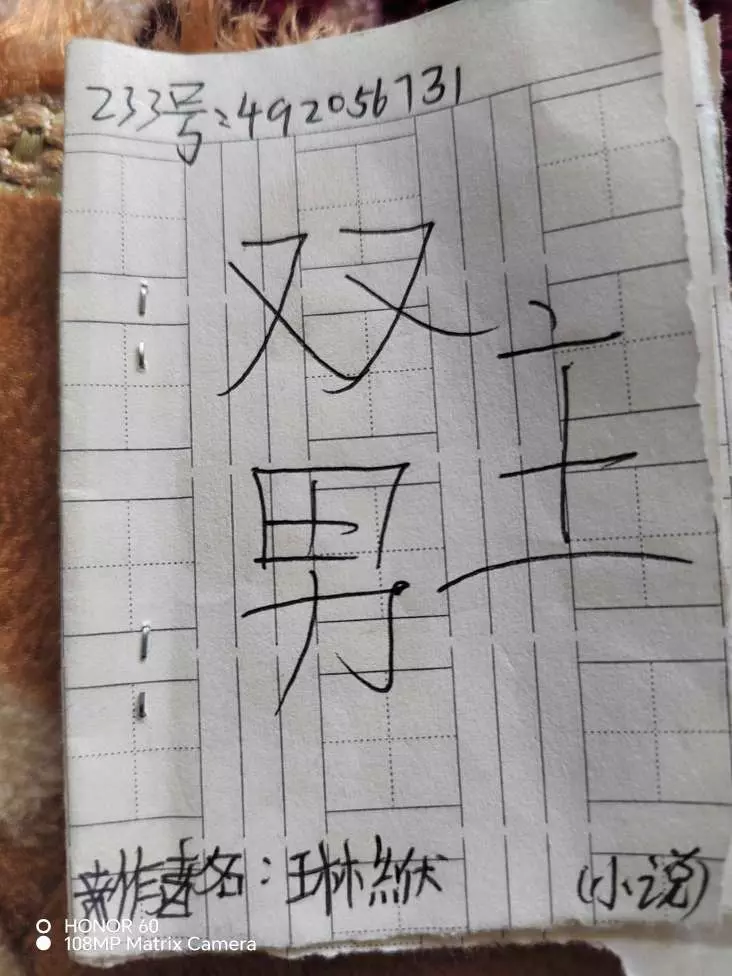 233号:492056731
双
男主
作者名:琳
(小说)
HONOR 60
108MP Matrix Camera